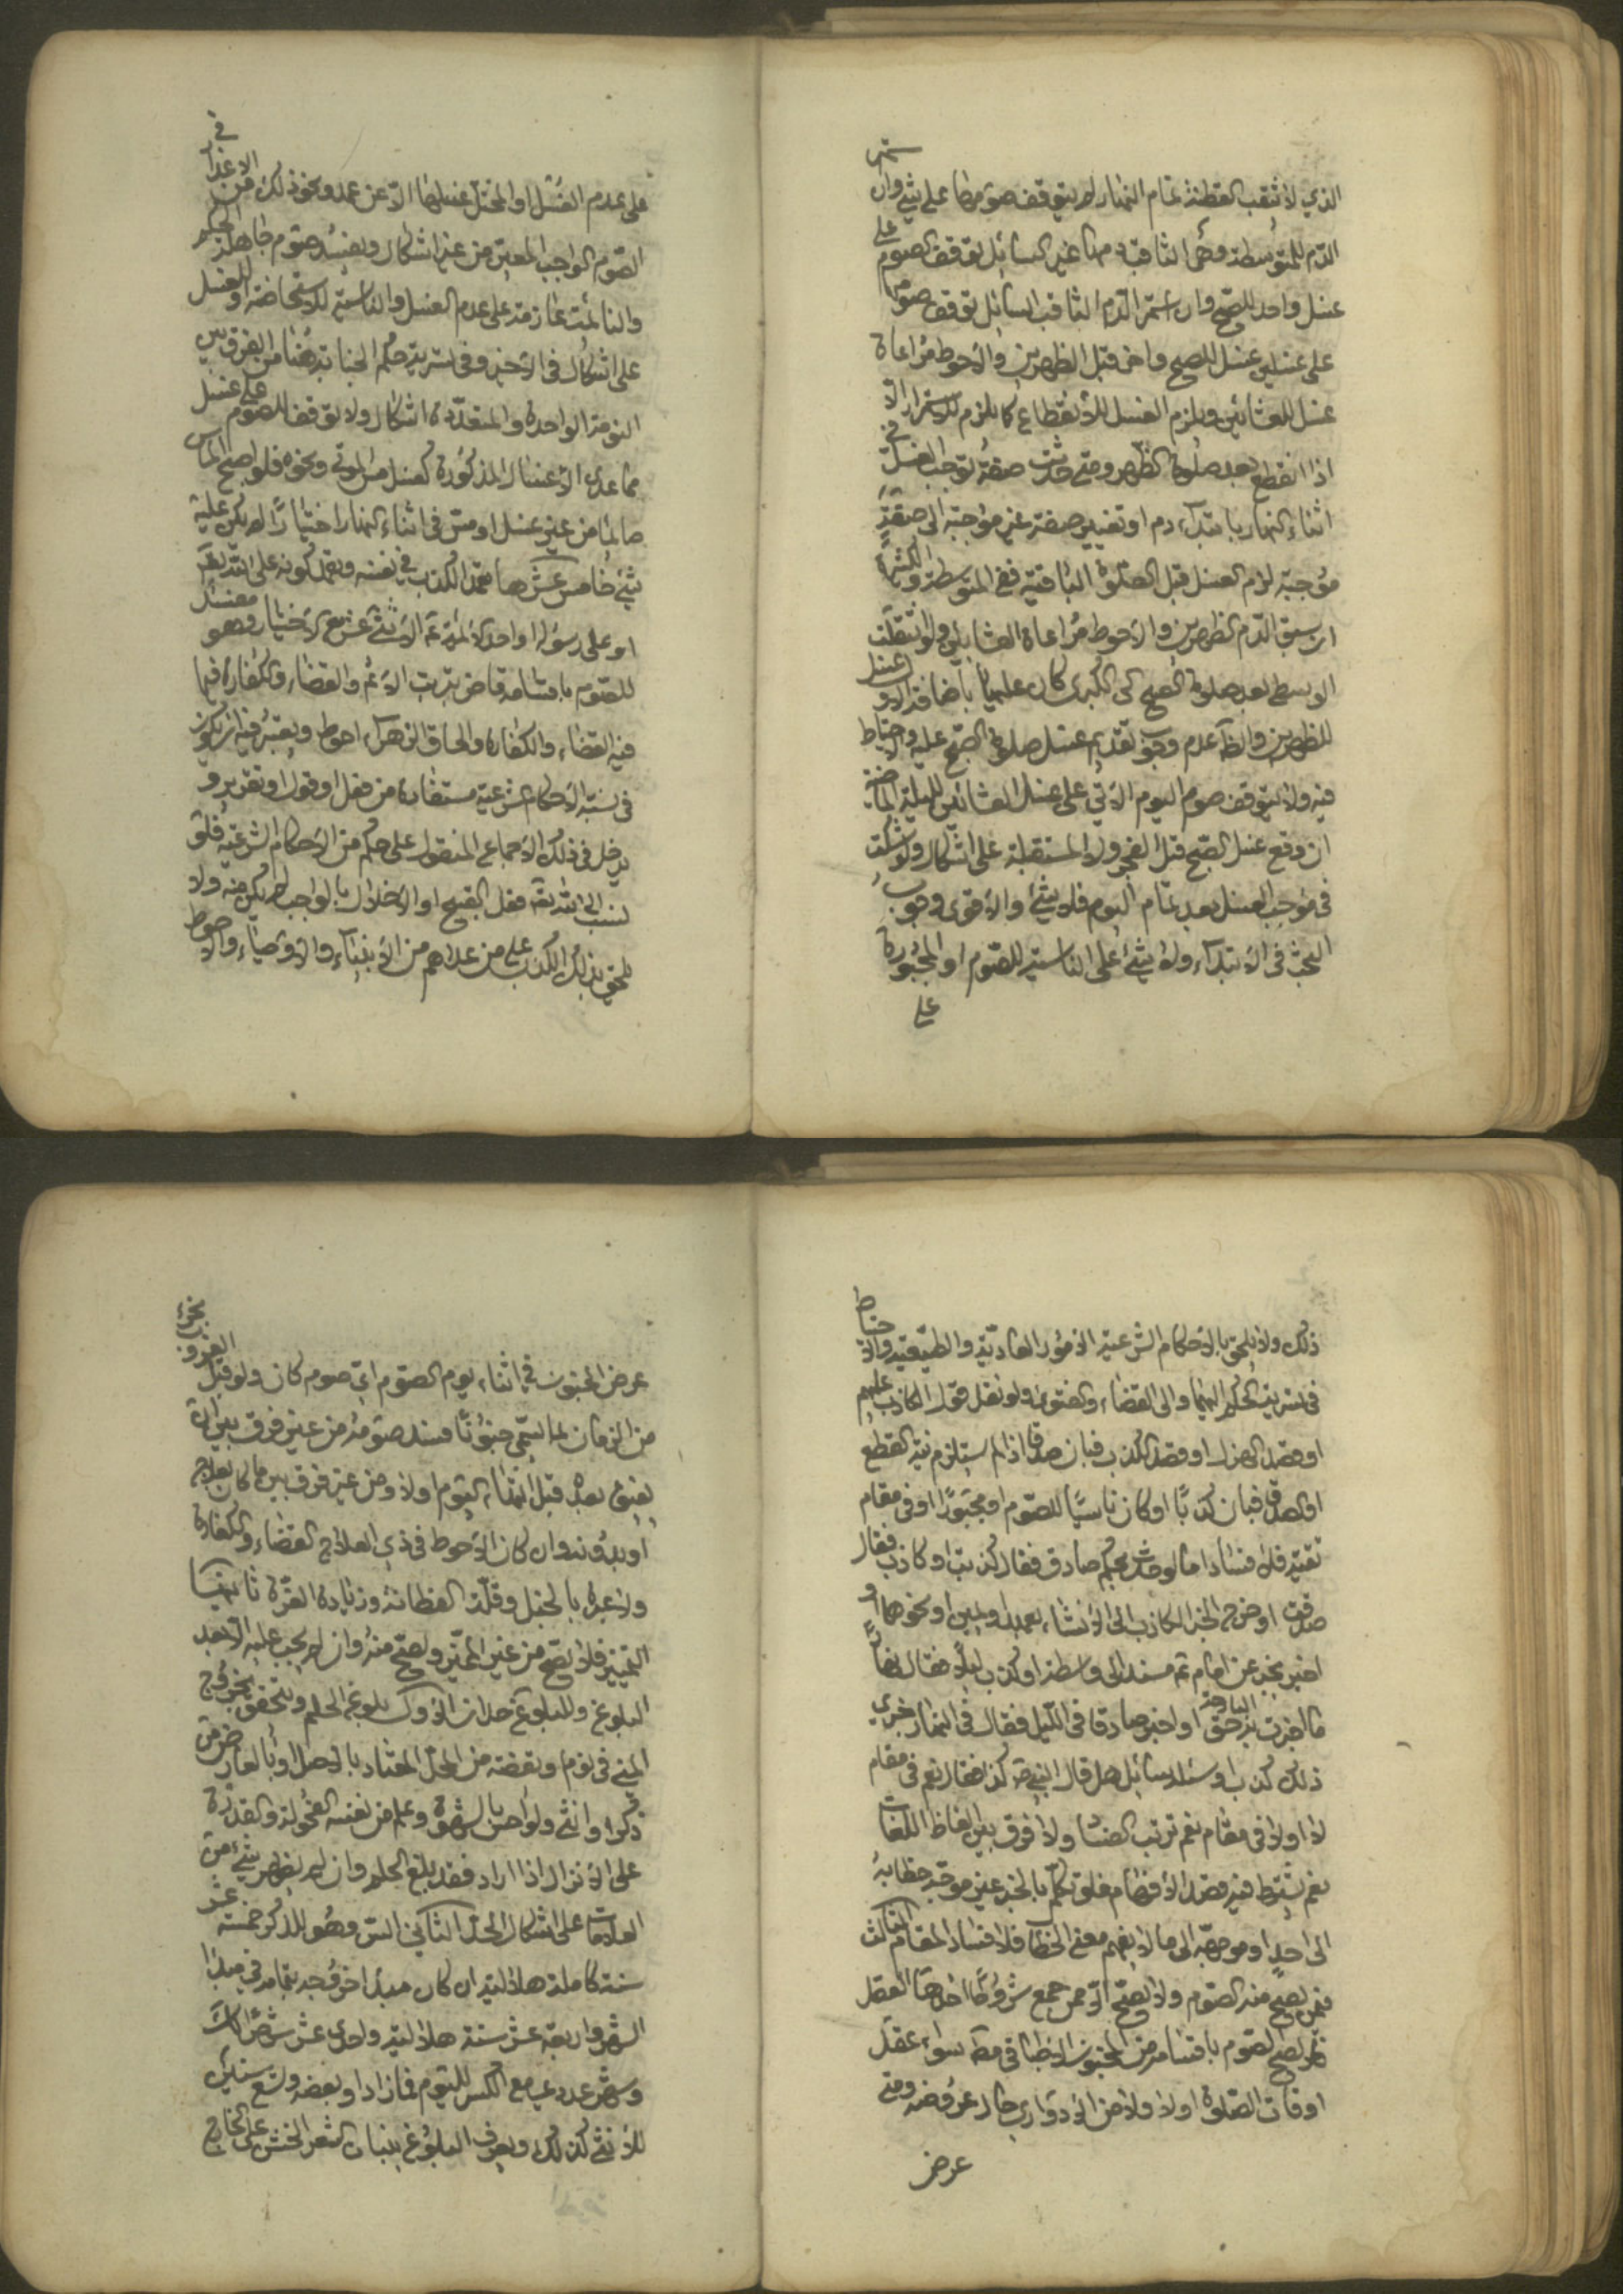 الذي لا تثقب القطنة تمام النهار لم يتوقف صومها على شئ وان استمر
الدم للمتوسطة وهي الثاقبة دمها غير السائل توقف الصوم على
غسل واحد للصبح وان استمر الدم الثاقب السائل توقف صومها
على غسلين غسل للصبح واخر قبل الظهرين والاحوط مراعاة
غسل للعشائين ويلزم الغسل للانقطاع كما يلزم للاستمرار الا
اذا انقطع بعد صلوة الظهر ومتى حدثت صفة توجب الغسل في
اثناء النهار بابتداء دم او تغيير صفة غير موجبة الى صفة
موجبة لزم الغسل قبل الصلوة الباقية ففي المتوسطة والكثيرة
ان سبق الدم الظهرين والاحوط مراعاة العشائين ولو انتقلت
الوسطى بعد صلوة الصبح الى الكبرى كان عليها باضافة الاول غسل
للظهرين والظ عدم وجوب تقديم غسل صلوة الصبح عليه والاحتياط
فيه ولا يتوقف صوم اليوم الاتي على غسل العشائين لليلة الماضية
ان وقع غسل الصبح قبل الفجر ولا المستقبلة على اشكال ولو شكت
في موجب الغسل بعد تمام اليوم فلا شئ والاقوى وجوب
البحث في الابتداء ولا شئ على الناسية للصوم او المجبورة
على
على عدم الغسل او المختل غسلها الا عن عمد ونحو ذلك من الاعذار في
الصوم الواجب المعين من غير اشكال ويفسد صوم جاهلة الحكم
والنائمة عازمة على عدم الغسل والناسية للاستحاضة وللغسل
على اشكال في الاخير وفي تسرية حكم الجنابة هنا من الفرق بين
النومة الواحدة والمتعددة اشكال ولا توقف للصوم على غسل
مما عدى الاغسال المذكورة كغسل مس الموتى ونحوه فلو اصبح الماس
صائما من غير غسل او مس في اثناء النهار اختيارا لم يكن عليه
شئ خامس عشرها تعمد الكذب في نفسه وتعمد كونه على الله تعالى
او على رسوله او احد الائمة ع الاثني عشر مع الاختيار وهو مفسد
للصوم باقسامه قاض بترتب الاثم والقضاء والكفارة فيما
فيه القضاء والكفارة والحاق الزهراء احوط ويعتبر فيه ان يكون
في نسبة الاحكام شرعية مستفادة من فعل او قول او تقرير و
يدخل في ذلك الاجماع المنقول على حكم من الاحكام الشرعية فلو
نسب الى الله تعه فعل القبيح او الاخلال بالواجب لم يكن منه ولا
يلحق بذلك الكذب على من عداهم من الانبياء والاوصياء والاحوط
ذلك ولا يلحق بالاحكام الشرعية الامور العادية والطبيعية والاحتياط
في تسرية الحكم اليهما والى القضاء والفتوى ولو نقل قول الكاذب عليهم
او قصد الهزل او قصد الكذب فبان صدقا اذا لم يستلزم نية القطع
او الصدق فبان كذبا او كان ناسيا للصوم او مجبورا او في مقام
تقية فلا افساد اما لو حدث بحكم صادق فقال كذبت او كاذب فقال
صدقت او خرج الخبر الكاذب الى الانشاء بعهد او يمين او نحوهما او
اخبر بخبر عن امام ع مسند الى واسطة او كذب ليلا فقال نهارا
ما اخبرت به البارحة حق او اخبر صادقا في الليل فقال في النهار خبري
ذلك كذب او سئله سائل هل قال النبي ص كذا فقال نعم في مقام
لا او لا في مقام نعم ترتب الفساد ولا فرق بين الفاظ اللغات
نعم يشترط فيه قصد الافهام فلو تكلم بالخبر غير موجه خطابه
الى احد او موجهه الى ما لا يفهم معنى الخطاب فلا افساد المقام الثالث
فيمن يصح منه الصوم ولا يصح الا ممن جمع شروطا احدها العقل
فلا يصح الصوم باقسامه من المجنون الاطباقي مطه سواء عقل
اوقات الصلوة او لا ولا من الادواري حال عروضه ومتى
عرض
عرض الجنون في اثناء يوم الصوم اي صوم كان ولو قبل الغروب بجزء
من الزمان لما يسمى جنونا فسد صومه من غير فرق بين ان
يفيق بعده قبل انتهاء اليوم او لا ومن غير فرق بين ما كان بعلاج
او بدونه وان كان الاحوط في ذي العلاج القضاء والكفارة
ولا عبرة بالخبل وقلة الفطانة وزيادة الغرة ثانيها
التمييز فلا يصح من غير المميز ويصح منه وان لم يجب عليه الا بعد
البلوغ وللبلوغ حدان الاول بلوغ الحلم ويتحقق بخروج
المني في نوم او يقظة من المحل المعتاد بالاصل او بالعارض من
ذكر او انثى ولو احس بالشهوة وعلم من نفسه الفحولة والقدرة
على الانزال اذا اراد فقد بلغ الحلم وان لم يظهر شئ من
العلامات على اشكال الحد الثاني السن وهو للذكر خمسة عشر
سنة كاملة هلالية ان كان مبدا خروجه بتمامه في مبدا
الشهر واربعة عشر سنة هلالية واحدى عشر شهرا كك
وشهر عددي مع الكسر لليوم فما زاد او بعضه وتسع سنين
للانثى كذلك ويعرف البلوغ بنبات الشعر الخشن على الخارج